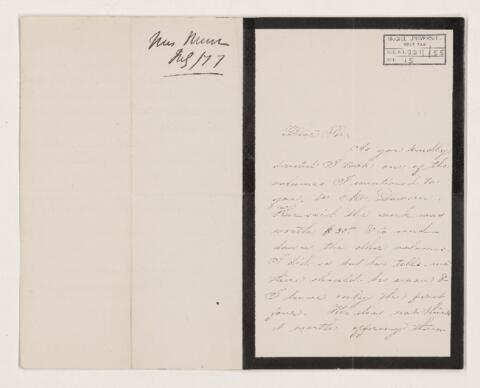 Mrs Muir
Feby/77
McGILL UNIVERSITY
ACC. NO. 2211/55
REF. 15
Dear Sir,
As you kindly
directed I took one of the
volumes I mentioned to
you, to Mr Dawson.
He said the work was
worth $30.00 & to send
down the other volumes
I did so but he tells me
there should be seven &
I have only the first
four. He does not think
it worth offering them